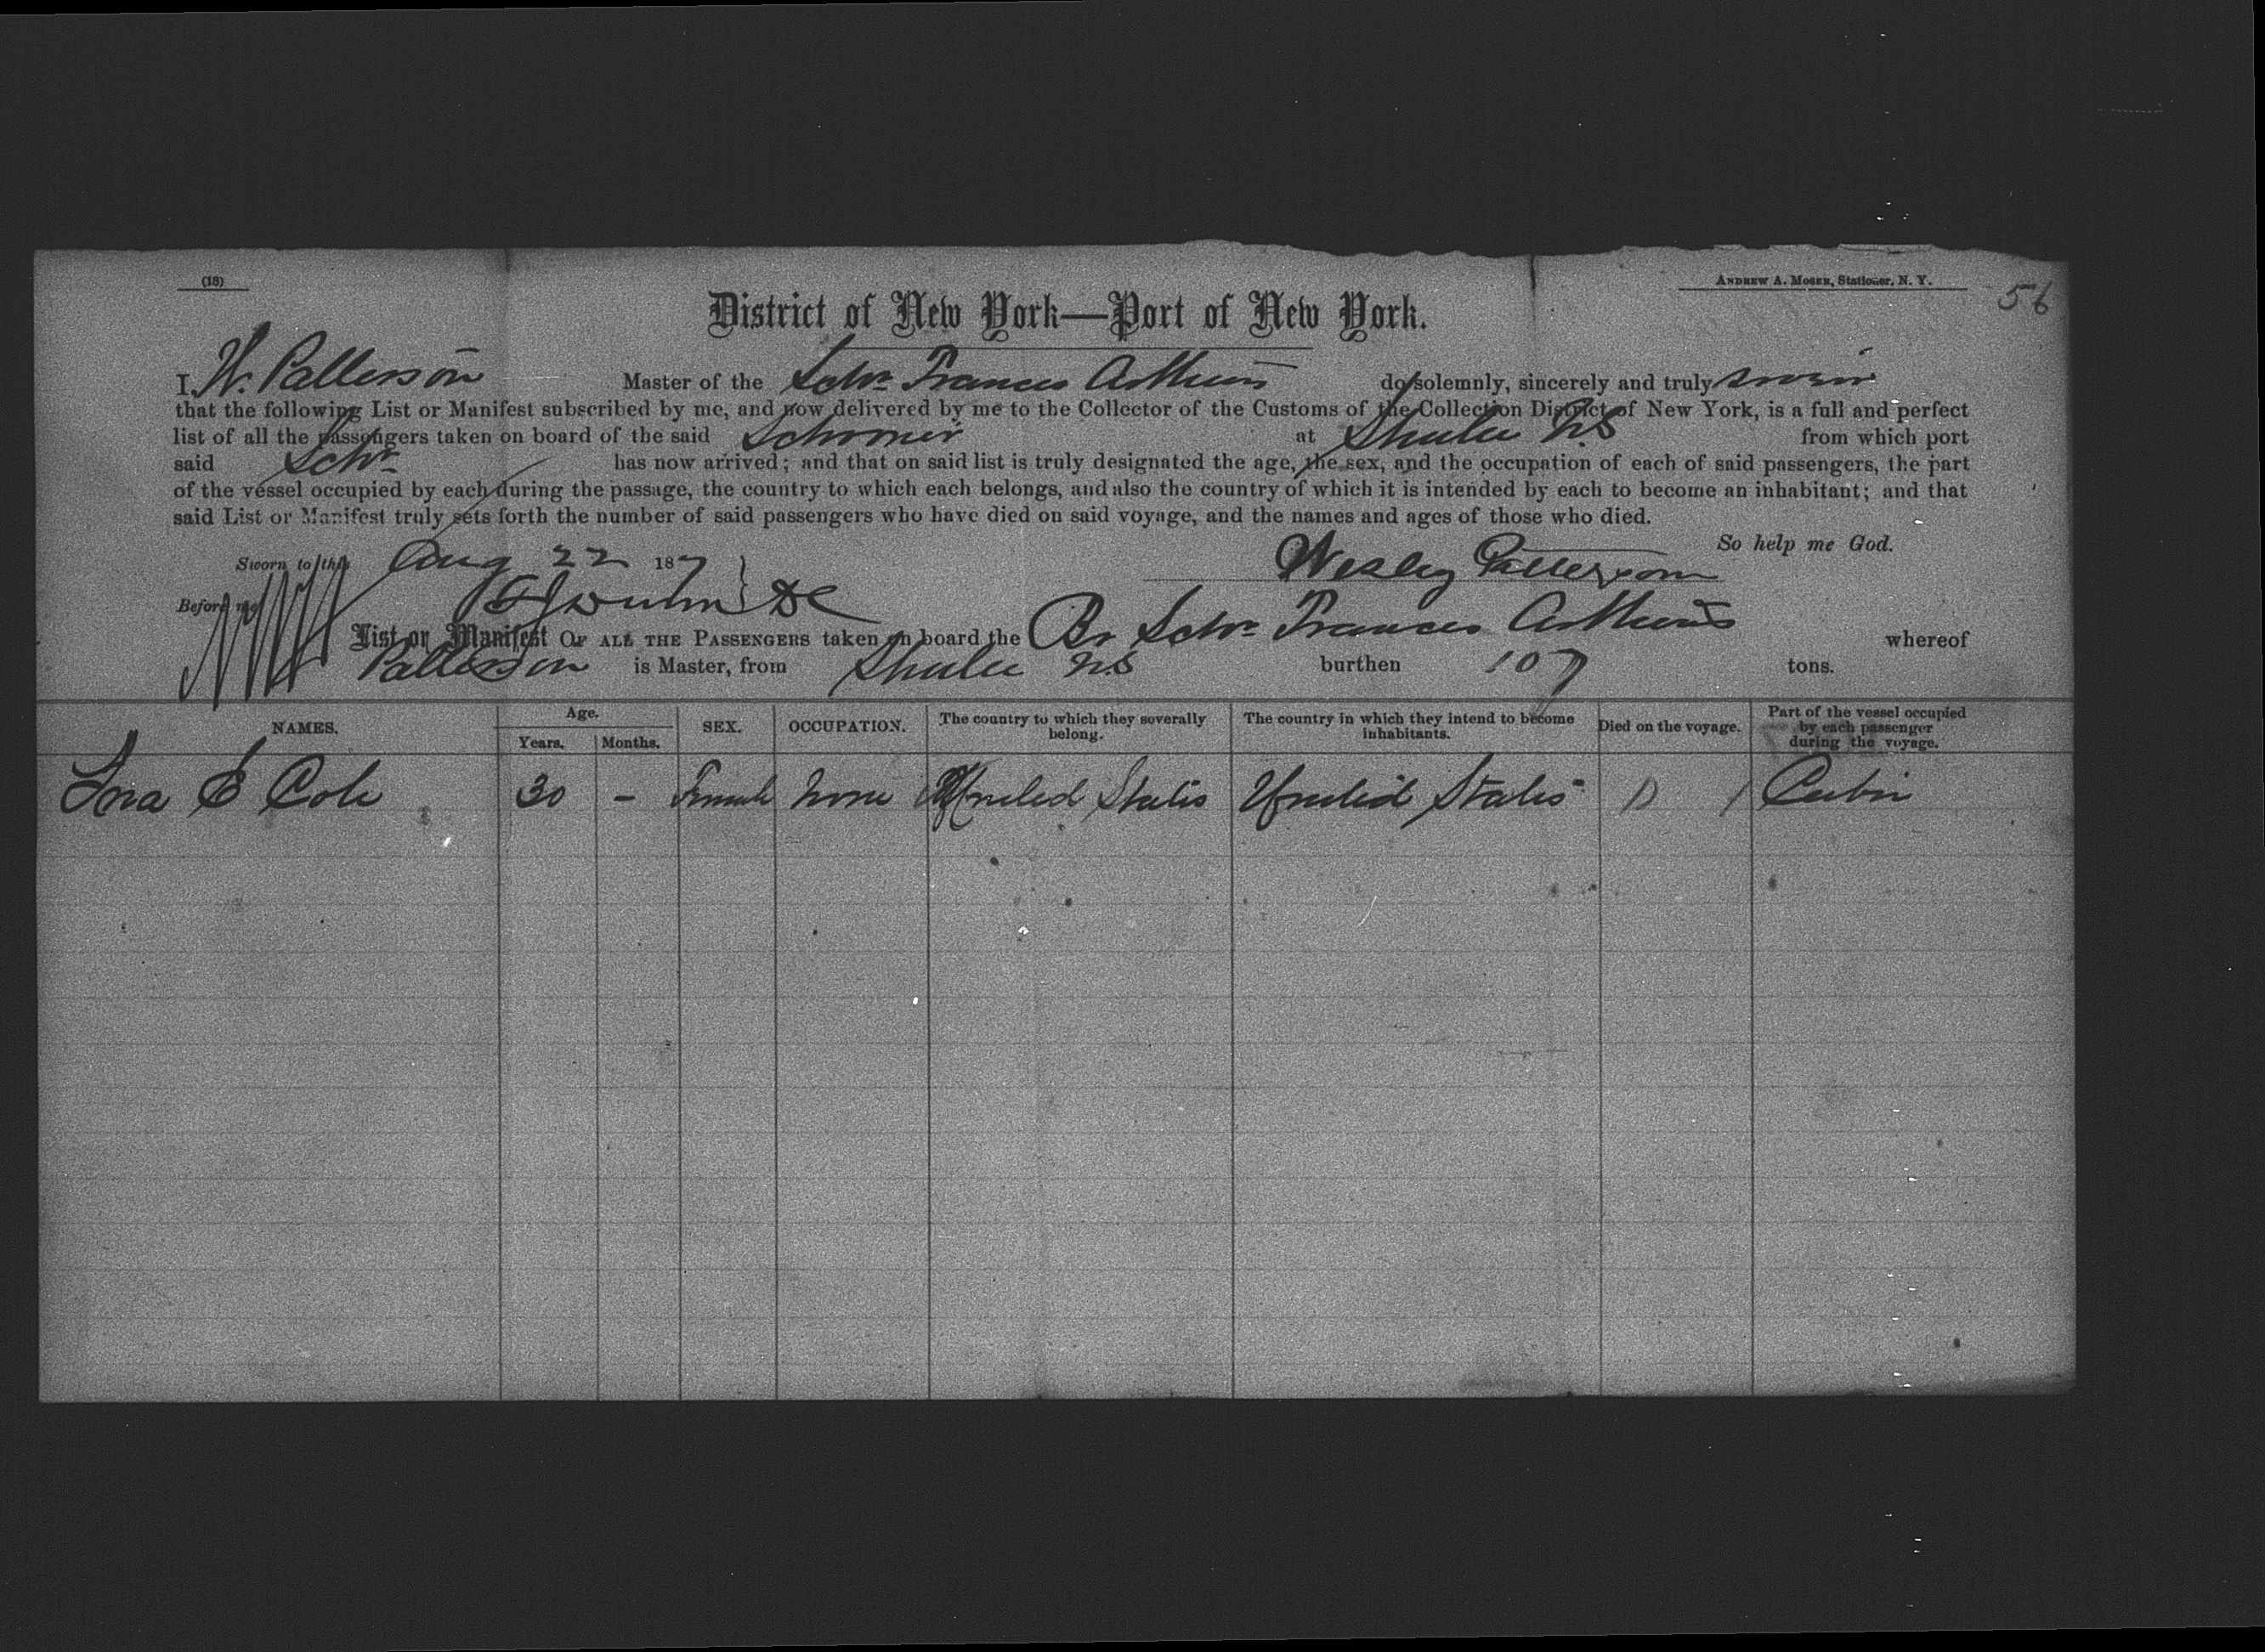 (18)
ANDREW A. MOSER, Stationer, N. Y.
56
District of New York—Port of New York.
I, W. Patterson Master of the Schr Frances Arthur do solemnly, sincerely and truly swear
that the following List or Manifest subscribed by me, and now delivered by me to the Collector of the Customs of the Collection District of New York, is a full and perfect
list of all the passengers taken on board of the said Schooner at Shulee N.S from which port
said Schr has now arrived; and that on said list is truly designated the age, the sex, and the occupation of each of said passengers, the part
of the vessel occupied by each during the passage, the country to which each belongs, and also the country of which it is intended by each to become an inhabitant; and that
said List or Manifest truly sets forth the number of said passengers who have died on said voyage, and the names and ages of those who died.
So help me God.
Sworn to this Aug 22 187
Wesley Patterson
Before me
List or Manifest OF ALL THE PASSENGERS taken on board the Br Schr Frances Arthur whereof
Patterson is Master, from Shulee N.S burthen 107 tons.
NAMES. Age. Years. Months. SEX. OCCUPATION. The country to which they severally belong. The country in which they intend to become inhabitants. Died on the voyage. Part of the vessel occupied by each passenger during the voyage.
E Cole 30 - Female None United States United States Cabin